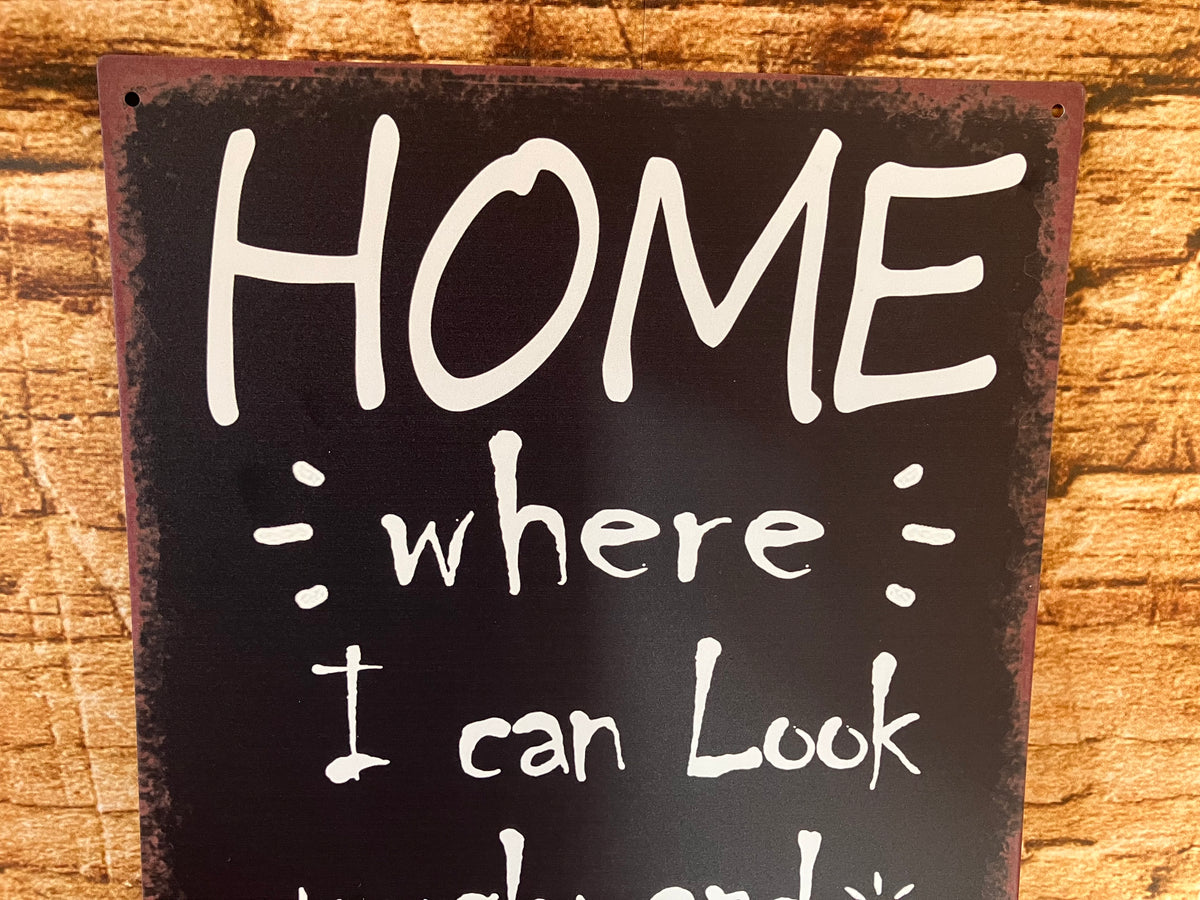 HOME
where
I can Look